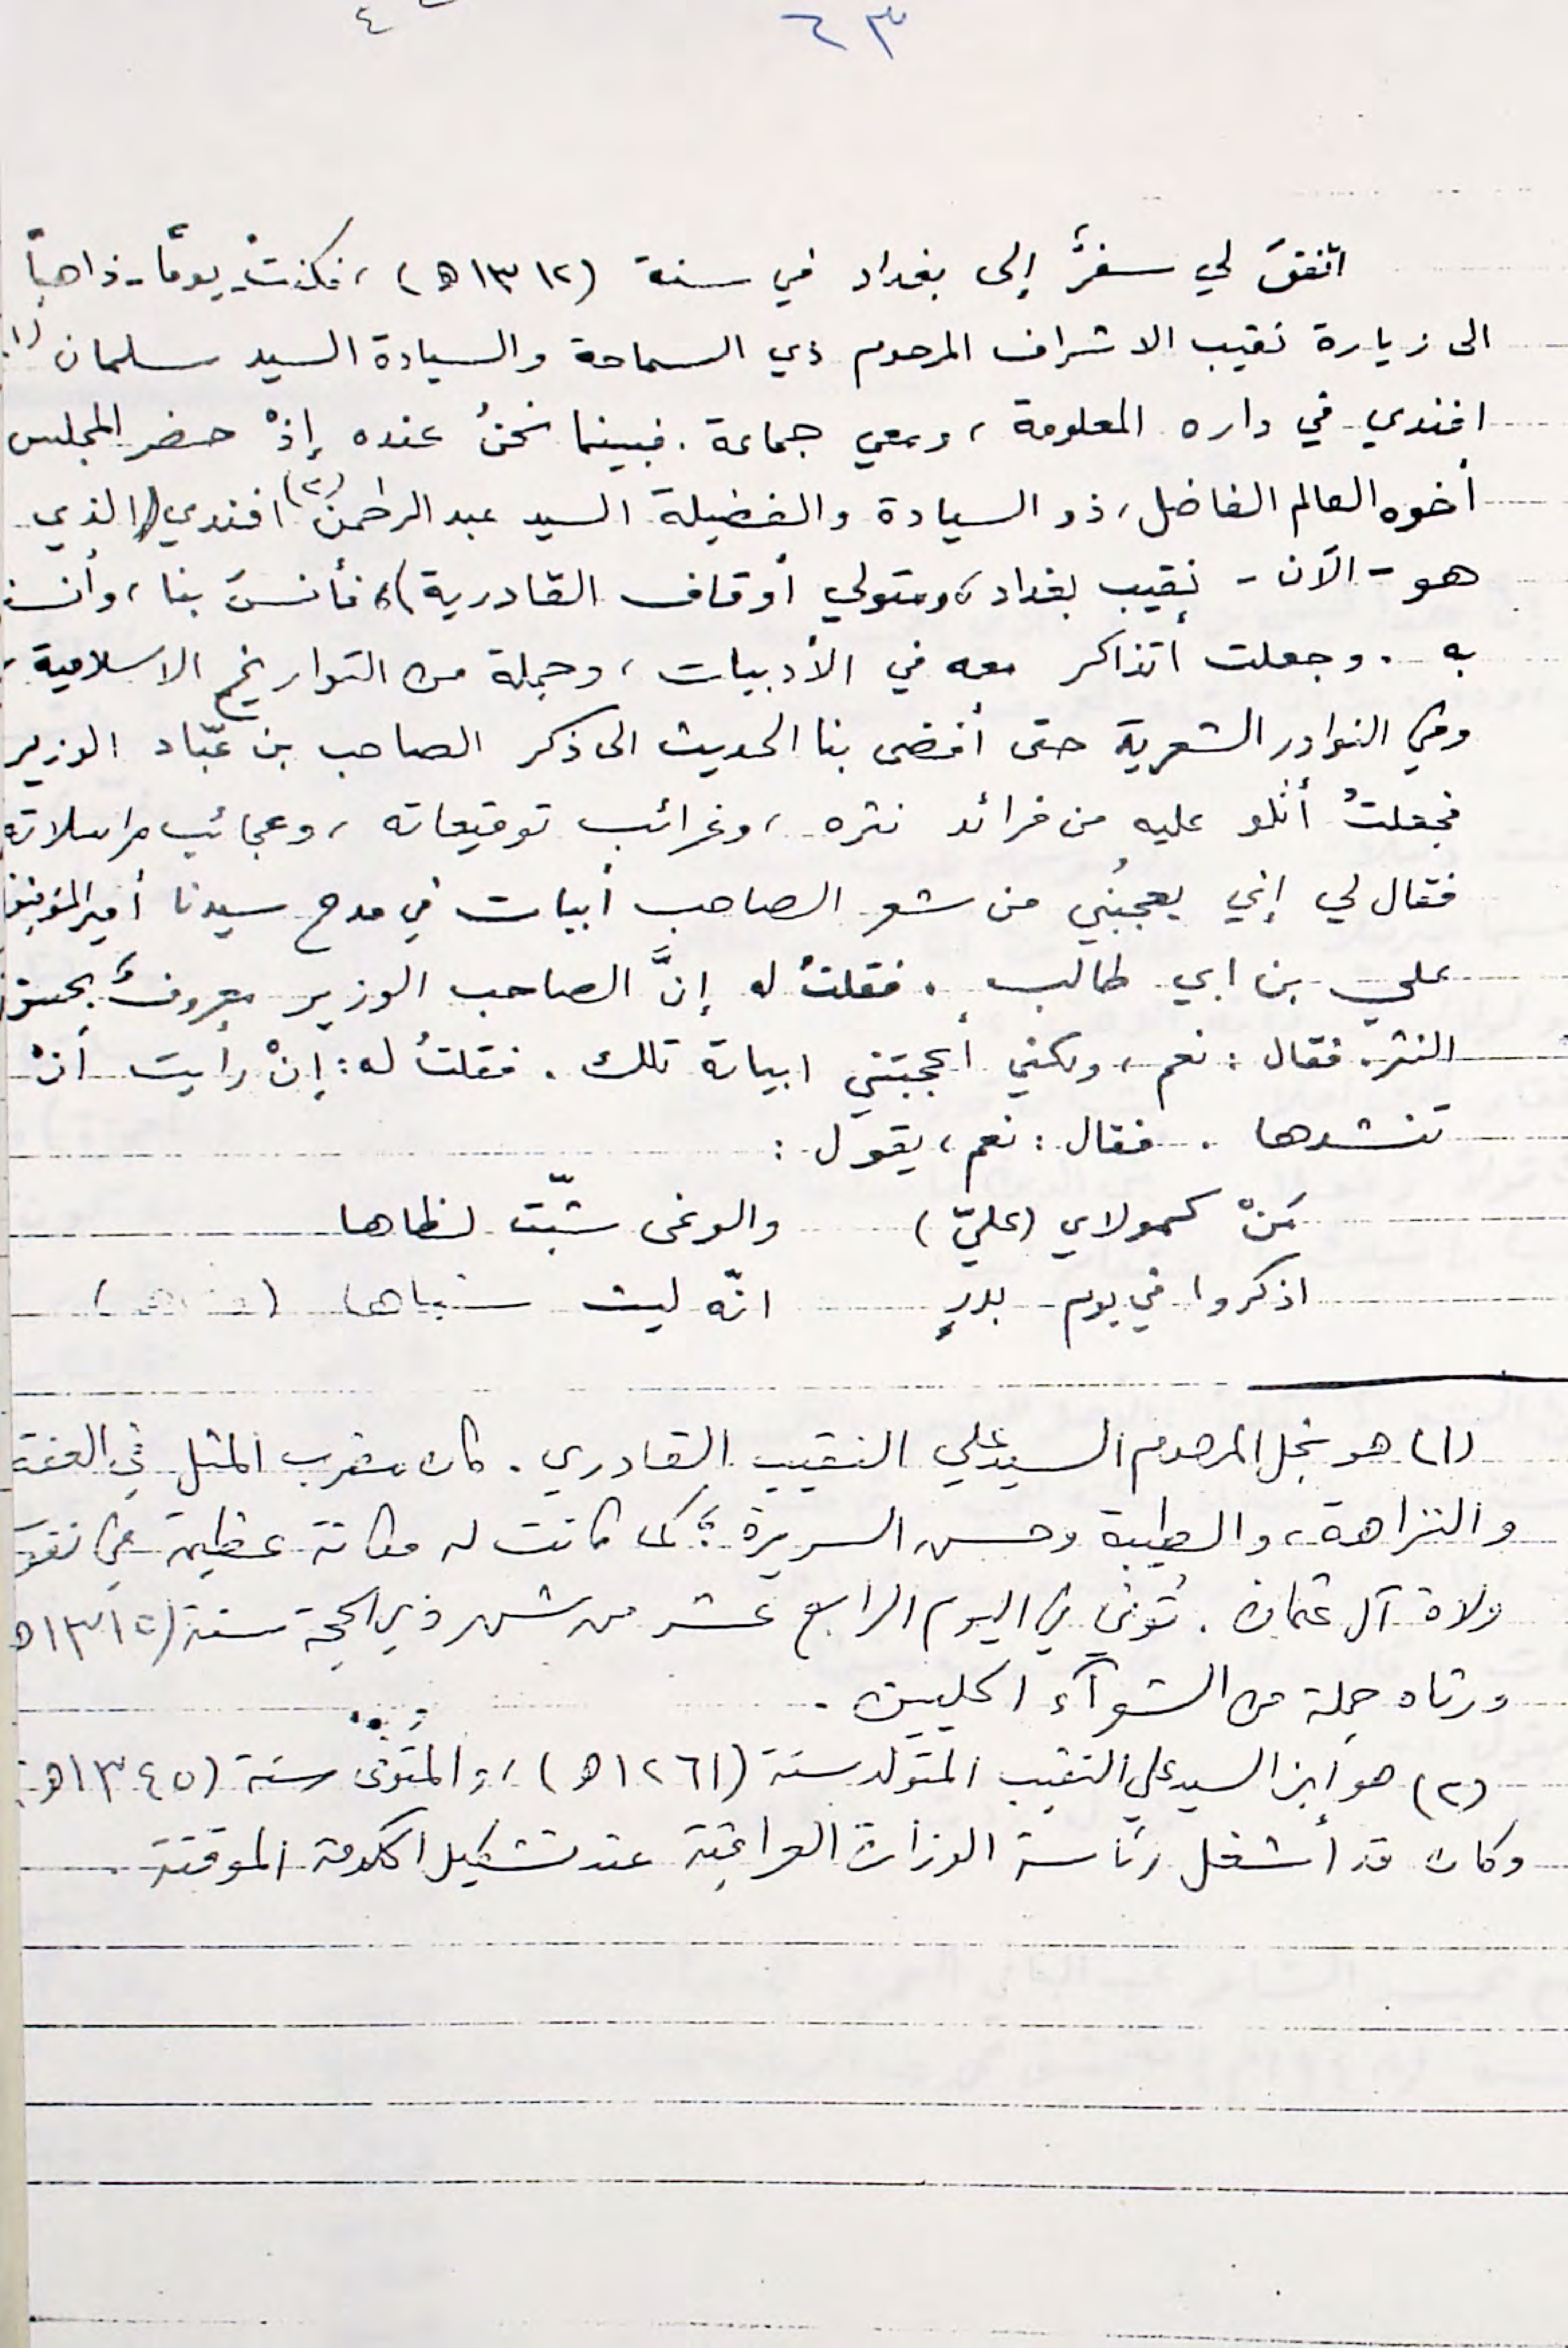 ٦٣
اتفقَ لي سفرٌ إلى بغداد في سنة (١٣١٢ه) ، فكنتُ - يوماً - ذاهباً
الى زيارة نقيب الاشراف المرحوم ذي السماحة والسيادة السيد سلمان (١)
افندي في داره المعلومة ، ومعي جماعة . فبينما نحنُ عنده إذْ حضر المجلس
أخوه العالم الفاضل ، ذو السيادة والفضيلة السيد عبد الرحمن (٢) افندي (الذي
هو - الآن - نقيب بغداد ، ومتولي أوقاف القادرية) ، فأنسَ بنا ، وأنسنا
به . وجعلت أتذاكر معه في الأدبيات ، وجملة من التواريخ الاسلامية ،
وفي النوادر الشعرية حتى أفضى بنا الحديث الى ذكر الصاحب بن عبّاد الوزير
فجعلتُ أتلو عليه من فرائد نثره ، وغرائب توقيعاته ، وعجائب مراسلاته
فقال لي إني يعجبُني من شعر الصاحب أبيات في مدح سيدنا أمير المؤمنين
علي بن ابي طالب . فقلتُ له إنَّ الصاحب الوزير معروفٌ بحسن
النثر . فقال : نعم ، ولكني أعجبتني ابياته تلك . فقلتُ له : إنْ رأيت أنْ
تنشدها . فقال : نعم ، يقول :
مَنْ كمولاي (عليّ) والوغى شبّت لظاها
اذكروا في يوم بدرٍ انّه ليث شباها
(١) هو نجل المرحوم السيد علي النقيب القادري . كان مضرب المثل في العفة
والنزاهة ، والطيبة وحسن السريرة ؛ كما كانت له مكانة عظيمة في نفوس
ولاة آل عثمان . تُوفي في اليوم الرابع عشر من شهر ذي الحجة سنة (١٣١٥ه
ورثاه جملة من الشعرآء الحليين .
(٢) هو أبن السيد علي النقيب المتولد سنة (١٢٦١ه) ، والمتوفّى سنة (١٣٤٥ه)
وكان قد أشغل رئاسة الوزارة العراقية عند تشكيل الحكومة الموقتة .